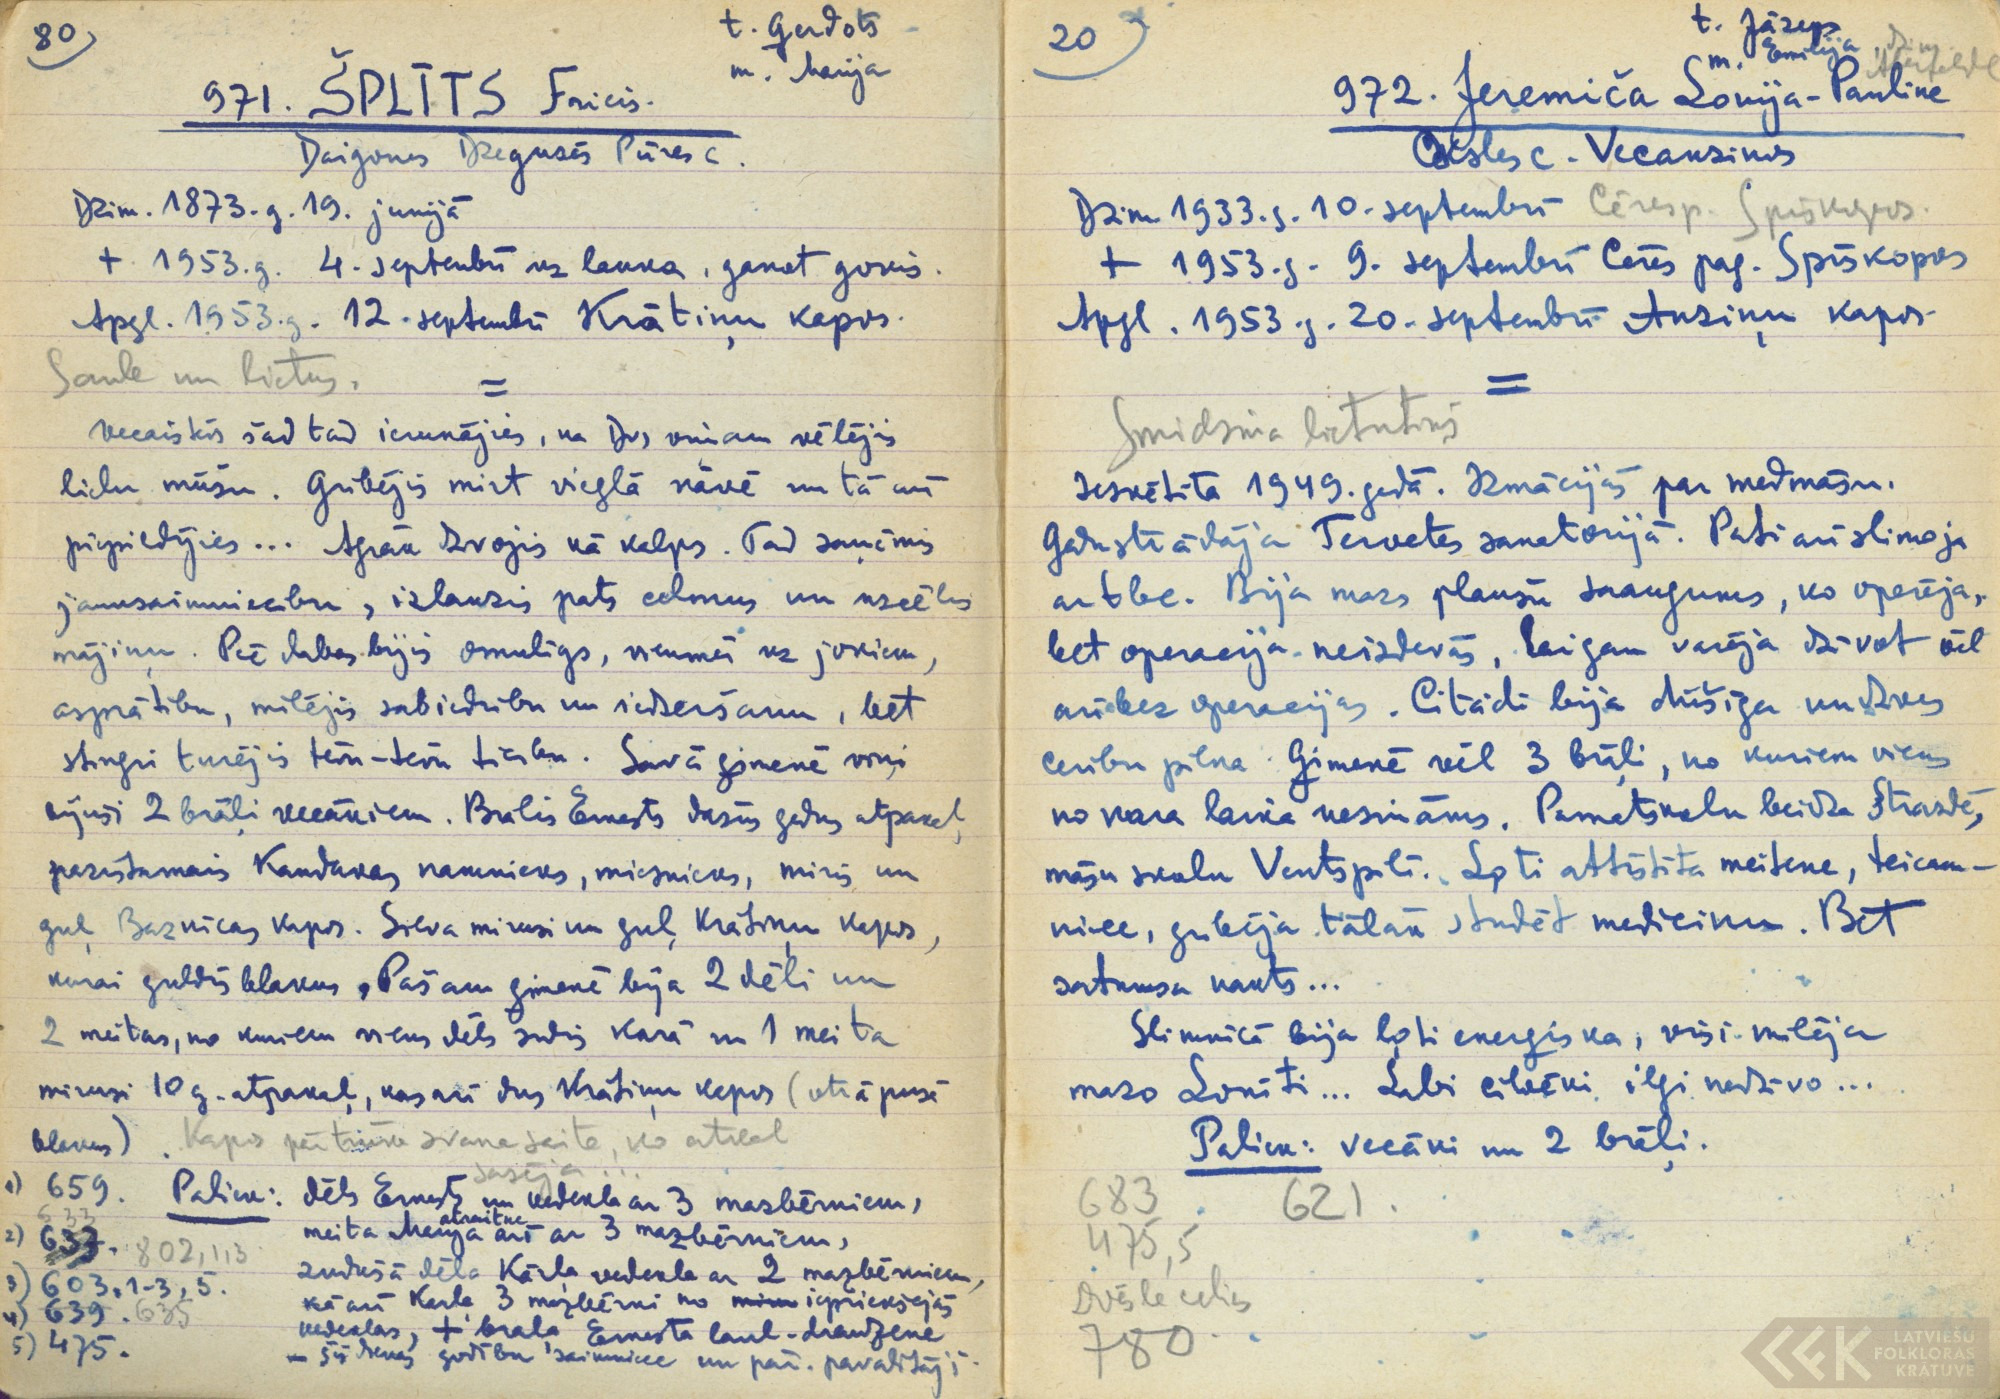 80
t. Gerdots
m. Marija
971. ŠPLĪTS Fricis.
Daigones Dzegusēs Pūres c.
Dzim. 1873. g. 19. jūnijā
+ 1953. g. 4. septembrī uz lauka, ganot govis.
Apgl. 1953. g. 12. septembrī Krātiņu kapos.
Saule un lietus.
=
Vecaiskis šad tad ierunājies, ka Dvs viņam vēlējis
lielu mūžu. Gribējis mirt vieglā nāvē un tā arī
piepildījies... Agrāk dzīvojis kā kalps. Tad saņēmis
jaunsaimniecību, izlauzis pats celmus un uzcēlis
mājiņu. Pēc dabas bijis omulīgs, vienmēr uz jokiem,
asprātību, mīlējis sabiedrību un iedzeršanu, bet
stingri turējis tēvu-tēvu ticību. Savā ģimenē viņi
bijuši 2 brāļi vecākiem. Brālis Ernests dažus gadus atpakaļ,
pazīstamais Kandavas namnieks, miesnieks, miris un
guļ Baznīcas kapos. Sieva mirusi un guļ Krātiņu kapos,
kurai guldīs blakus. Pašam ģimenē bija 2 dēli un
2 meitas, no kuriem viens dēls zudis karā un 1 meita
mirusi 10 g. atpakaļ, kas arī dus Krātiņu kapos (otrā pusē
blakus). Kapos pārtrūka zvana saite, ko atkal
sasēja...
1) 659. Paliek: dēls Ernests un vedekla ar 3 mazbērniem,
633
atraitne
2) 637. 802, 1, 13 meita Marija arī ar 3 mazbērniem,
3) 603, 1-3, 5. zudušā dēla Kārļa vedekla ar 2 mazbērniem,
4) 639. 635 kā arī Kārļa 3 mazbērni no iepriekšējās
vedeklas, + brāļa Ernesta laul. draudzene
5) 475. – šīs dienas godību saimniece un pār. pavadītāji.
20
t. Jāzeps
m. Emilija dzim.
972. Jeremiča Lonija-Pauline
Oksles c. Vecauziņos
Dzim. 1933. g. 10. septembrī Cēres p. Spīškopos.
+ 1953. g. 9. septembrī Cēres pag. Spīškopos
Apgl. 1953. g. 20. septembrī Auziņu kapos.
=
Smidzina lietutiņš
Iesvētīta 1949. gadā. Izmācījās par medmāsu.
Gadu strādāja Tērvetes sanatorijā. Pati arī slimoja
ar tbc. Bija mazs plaušu saaugums, ko operēja,
bet operācija neizdevās, lai gan varēja dzīvot vēl
arī bez operācijas. Citādi bija dūšīga un dzīves
cerību pilna. Ģimenē vēl 3 brāļi, no kuriem viens
no kara laika nezināms. Pamatskolu beidza Strazdē,
māsu skolu Ventspilī. Ļoti attīstīta meitene, teicam-
niece, gribēja tālāk studēt medicīnu. Bet
satumsa nakts...
Slimnīcā bija ļoti enerģiska, visi mīlēja
mazo Lonīti... Labi cilvēki ilgi nedzīvo...
Paliek: vecāki un 2 brāļi.
683 621.
475,5
Dvēsle celies
780.
LATVIEŠU
FOLKLORAS
KRĀTUVE